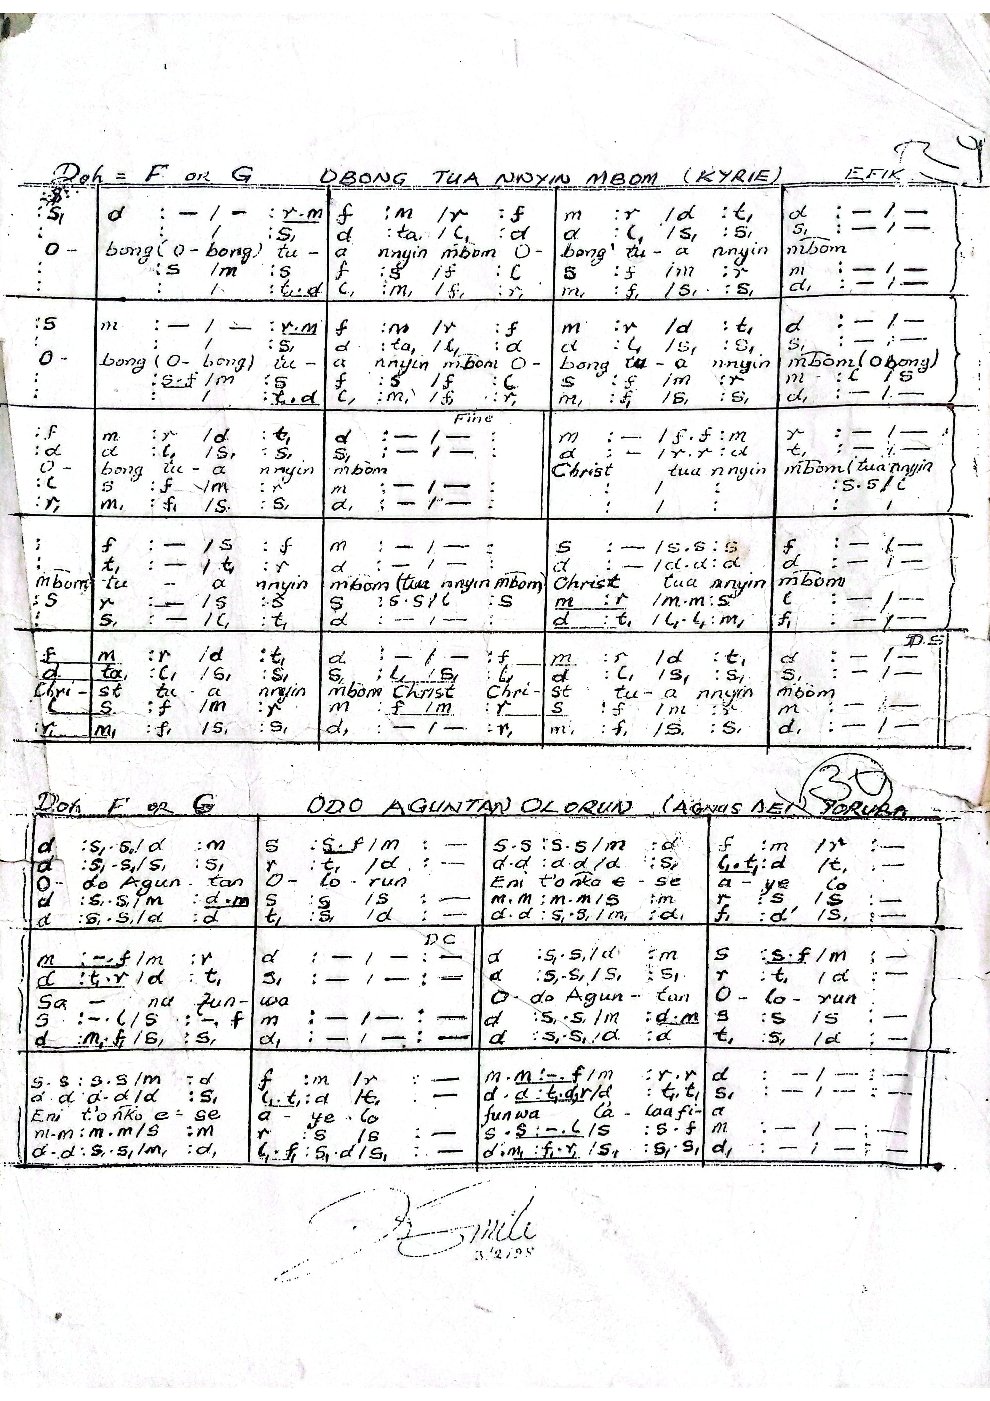 Doh = F OR G OBONG TUA NNYIN MBOM (KYRIE) EFIK
:s₁ | d : — / — :r.m | f :m /r :f | m :r /d :t₁ | d : — / —
: | : / :s₁ | d :ta₁ /l₁ :d | d :l₁ /s₁ :s₁ | s₁ : — / —
O- | bong (O-bong) tu - | a nnyin mbom O- | bong tu - a nnyin | mbom
: | :s /m :s | f :s /f :l | s :f /m :r | m : — / —
: | : / :t₁.d | l₁ :m₁ /f₁ :r₁ | m₁ :f₁ /s₁ :s₁ | d₁ : — / —
:s | m : — / — :r.m | f :m /r :f | m :r /d :t₁ | d : — / —
: | : / :s₁ | d :ta₁ /l₁ :d | d :l₁ /s₁ :s₁ | s₁ : — / —
O- | bong (O- bong) tu - | a nnyin mbom O- | bong tu - a nnyin | mbom (Obong)
: | :s.f /m :s | f :s /f :l | s :f /m :r | m :l /s
: | : / :t₁.d | l₁ :m₁ /f :r₁ | m₁ :f₁ /s₁ :s₁ | d₁ : — / —
Fine
:f | m :r /d :t₁ | d : — / — : | m : — /f.f :m | r : — / —
:d | d :l₁ /s₁ :s₁ | s₁ : — / — : | d : — /r.r :d | t₁ : — / —
O- | bong tu - a nnyin | mbom | Christ tua nnyin | mbom (tua nnyin
:l | s :f /m :r | m : — / — : | : / : | :s.s /l
:r₁ | m₁ :f₁ /s₁ :s₁ | d₁ : — / — : | : / : | : /
: | f : — /s :f | m : — / — : | s : — /s.s :s | f : — / —
: | t₁ : — /t₁ :r | d : — / — : | d : — /d.d :d | d : — / —
mbom) | tu - a nnyin | mbom (tua nnyin mbom) | Christ tua nnyin | mbom
:s | r : — /s :s | s :s.s /l :s | m :r /m.m :s | l : — / —
: | s₁ : — /l₁ :t₁ | d : — / — : | d :t₁ /l₁.l₁ :m₁ | f₁ : — / —
D.S
f | m :r /d :t₁ | d : — / — :f | m :r /d :t₁ | d : — / —
d | ta₁ :l₁ /s₁ :s₁ | s₁ :l₁ /s₁ :t₁ | d :l₁ /s₁ :s₁ | s₁ : — / —
Chri - | st tu - a nnyin | mbom Christ Chri - | st tu - a nnyin | mbom
l | s :f /m :r | m :f /m :r | s :f /m :r | m : — / —
:r₁ | m₁ :f₁ /s₁ :s₁ | d₁ : — / — :r₁ | m₁ :f₁ /s₁ :s₁ | d₁ : — / —
30
Doh F OR G ODO AGUNTAN OLORUN (AGNUS DEI) YORUBA
d :s₁.s₁ /d :m | s :s.f /m : — | s.s :s.s /m :d | f :m /r : —
d :s₁.s₁ /s₁ :s₁ | r :t₁ /d : — | d.d :d.d /d :s₁ | l₁.t₁ :d /t₁ : —
O- do Agun - tan | O - lo - run | Eni t'onko e - se | a - ye lo
d :s₁.s₁ /m :d.m | s :s /s : — | m.m :m.m /s :m | r :s /s : —
d :s₁.s₁ /d :d | t₁ :s₁ /d : — | d.d :s₁.s₁ /m₁ :d₁ | f₁ :d' /s₁ : —
DC
m :-.f /m :r | d : — / — : — | d :s₁.s₁ /d :m | s :s.f /m : —
d :t₁.r /d :t₁ | s₁ : — / — : — | d :s₁.s₁ /s₁ :s₁ | r :t₁ /d : —
Sa - nu fun - | wa | O- do Agun - tan | O - lo - run
s :-.l /s :-.f | m : — / — : — | d :s₁.s₁ /m :d.m | s :s /s : —
d :m₁.f₁ /s₁ :s₁ | d₁ : — / — : — | d :s₁.s₁ /d :d | t₁ :s₁ /d : —
s.s :s.s /m :d | f :m /r : — | m.m :-.f /m :r.r | d : — / — : —
d.d :d.d /d :s₁ | l₁.t₁ :d /t₁ : — | d.d :t₁.d,r /d :t₁.t₁ | s₁ : — / — : —
Eni t'onko e - se | a - ye lo | funwa la - laafi - | a
m.m :m.m /s :m | r :s /s : — | s.s :-.l /s :s.f | m : — / — : —
d.d :s₁.s₁ /m₁ :d₁ | l₁.f₁ :s₁.d /s₁ : — | d.m₁ :f₁.r₁ /s₁ :s₁.s₁ | d₁ : — / — : —
3/2/95